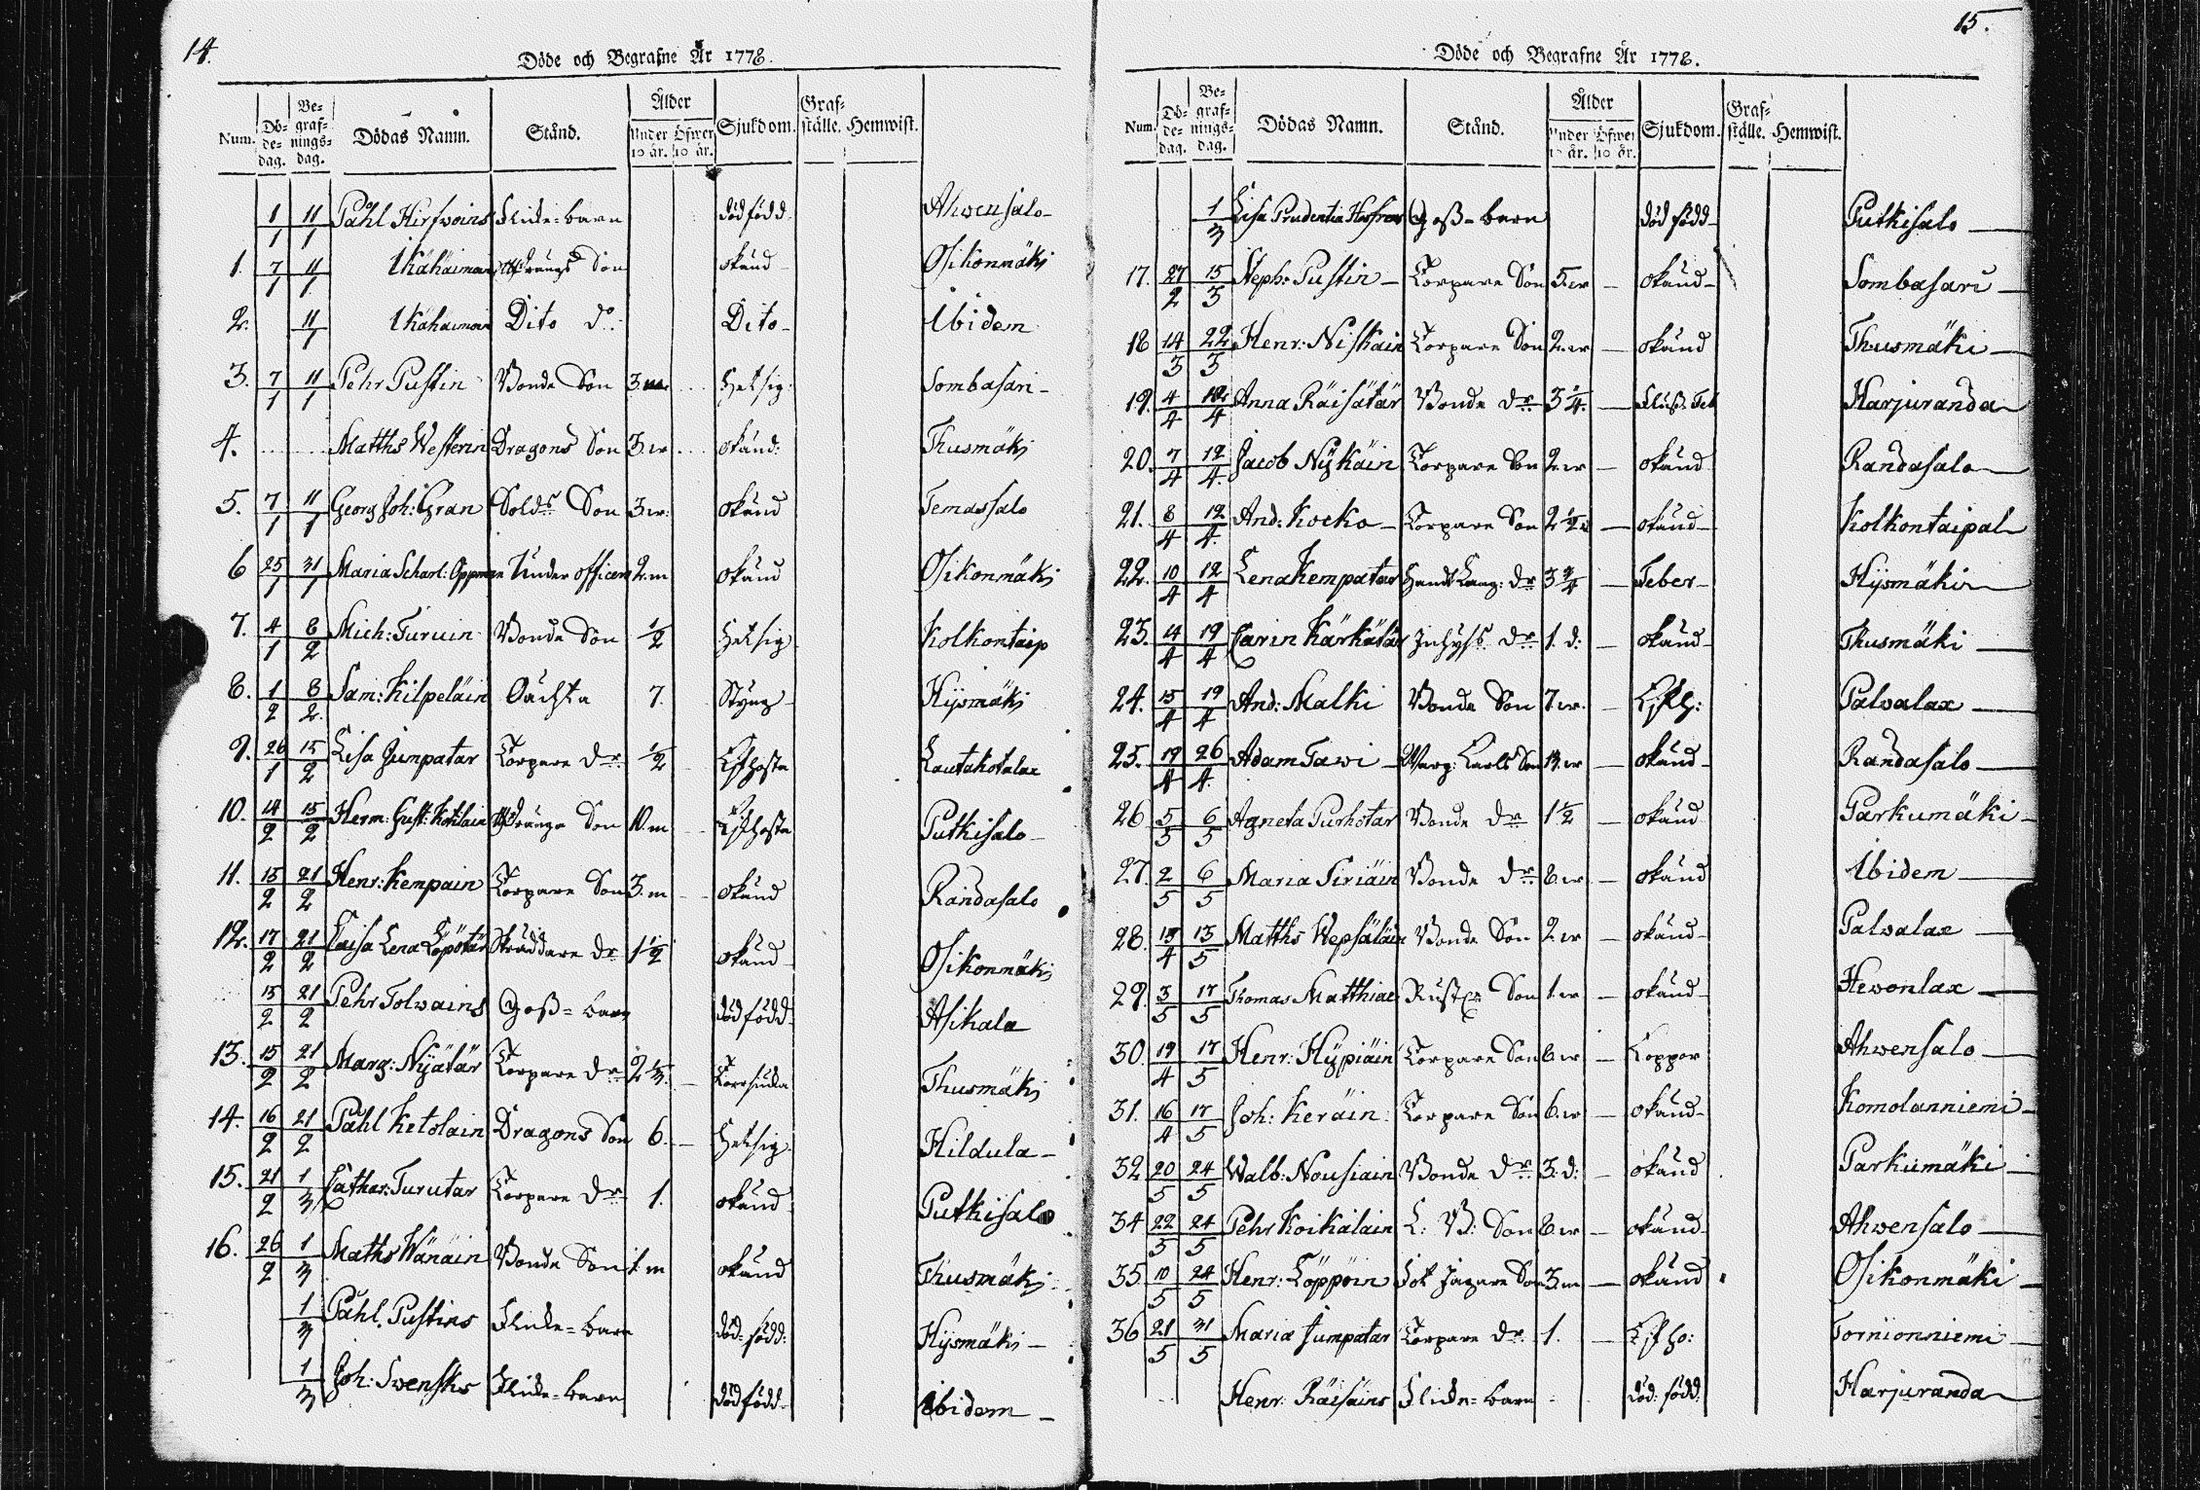 14.
Döde och Begrafne År 1778.
Num. Dödedag. Begrafningsdag. Dödas Namn. Stånd. Ålder Under 10 år. Öfwer 10 år. Sjukdom. Grafställe. Hemwist.
1/1 11/1 Påhl Hirfwoins Flicke=barn dödfödd Ahwensalo
1. 7/1 11/1 Ikähäimoin Son okänd Osikonmäki
2. 11/1 Ikähäimoin Dito do: Dito Ibidem
3. 7/1 11/1 Pehr Pustin Bonde Son 3 Hetsig Sombasari
4. Matths Westerin Dragons Son 3.w okänd: Thusmäki
5. 7/1 11/1 Georg Joh: Gran Solds Son 3.w: okänd Temassalo
6 25/1 31/1 Maria Scharl: Under officers 2.m okänd Osikonmäki
7. 4/1 8/2 Mich: Turuin Bonde Son 1/2 Hetsig Kolkontaip
8. 1/2 8/2 Sam: Kilpeläin 7. Styng Hÿsmäki
9. 26/1 15/2 Lisa Jumpatar Torpare dr 1/2 Kikhosta Lautakotalax
10. 14/2 15/2 Herm: Gust: Son 10.m Kikhosta Putkisalo
11. 15/2 21/2 Henr: Kempain Torpare Son 3.m okänd Randasalo
12. 17/2 21/2 Caisa Lena Löpötär Skräddare dr 1 1/2 okänd Osikonmäki
15/2 21/2 Pehr Tolwains Goß=barn dödfödd Asikala
13. 15/2 21/2 Marg: Nÿätär Torpare dr 2 Thusmäki
14. 16/2 21/2 Påhl Ketolain Dragons Son 6. Hetsig Hildula
15. 21/2 1/3 Cathar: Turutar Torpare dr 1. okänd Putkisalo
16. 26/2 1/3 Maths Wänäin Bonde Son 1.m okänd Thusmäki
1/3 Påhl Pustins Flicke=barn död:född: Hÿsmäki
1/3 Joh: Swensks Flicke=barn dödfödd Ibidem
15.
Döde och Begrafne År 1778.
Num. Dödedag. Begrafningsdag. Dödas Namn. Stånd. Ålder Under 10 år. Öfwer 10 år. Sjukdom. Grafställe. Hemwist.
1/3 Lisa Prudentia Goß=barn död född Putkisalo
17. 27/2 15/3 Steph: Pustin Torpare Son 5.w okänd Sombasari
18 14/3 22/3 Henr: Niskain Torpare Son 2.w okänd Thusmäki
19. 4/4 12/4 Anna Räisätär Bonde dr 3 1/4. Harjuranda
20. 7/4 12/4 Jacob Nÿkäin Torpare Son 2.w okänd Randasalo
21. 8/4 12/4 And: Kocko Torpare Son 2 1/2 okänd Kolkontaipal
22. 10/4 12/4 Lena Kempatar dr Feber Hÿsmäki
23. 14/4 19/4 Carin Kärkätär Inhÿs: dr 1.d: okänd Thusmäki
24. 15/4 19/4 And: Malki Bonde Son 7.w. Kikh: Palvalax
25. 19/4 26/4. Adam Tawi Son okänd Randasalo
26 5/5 6/5 Agneta Purhotar Bonde dr 1 1/2 okänd Parkumäki
27. 2/5 6/5 Maria Siriäin Bonde dr 8.w okänd Ibidem
28. 13/4 13/5 Matths Wepsäläin Bonde Son 2.w okänd Palvalax
29. 3/5 17/5 Thomas Matthiae Son 1.w okänd Hevonlax
30. 19/4 17/5 Henr: Hÿpiäin Torpare Son 6.w Koppor Ahwensalo
31. 16/4 17/5 Joh: Keräin Torpare Son 6.w okänd Komolanniemi
32 20/5 24/5 Walb: Nousiain Bonde dr 3.d: okänd Parkumäki
34 22/5 24/5 Pehr Koikalain L: B: Son 8.w okänd Ahwensalo
35 10/5 24/5 Henr: Löppöin Son 3.m okänd Osikonmäki
36 21/5 31/5 Maria Jumpatar Torpare dr 1. Kikho: Tornionniemi
Henr: Räisäins Flicke=barn död:född: Harjuranda